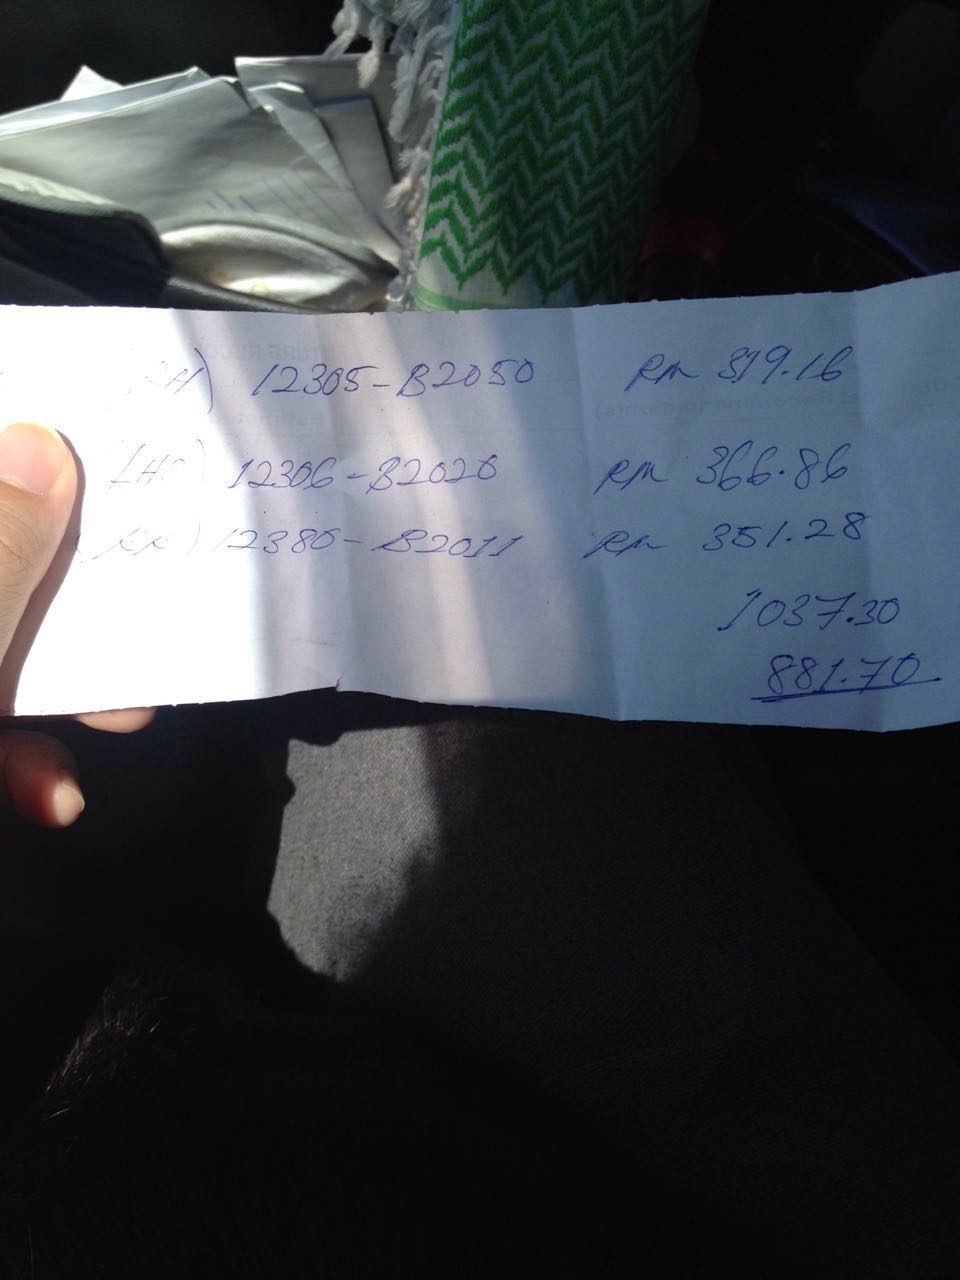 RH) 12305-B2050 RM 319.16
12306-B2020 RM 366.86
RR) 12380-B2011 RM 351.28
1037.30
881.70